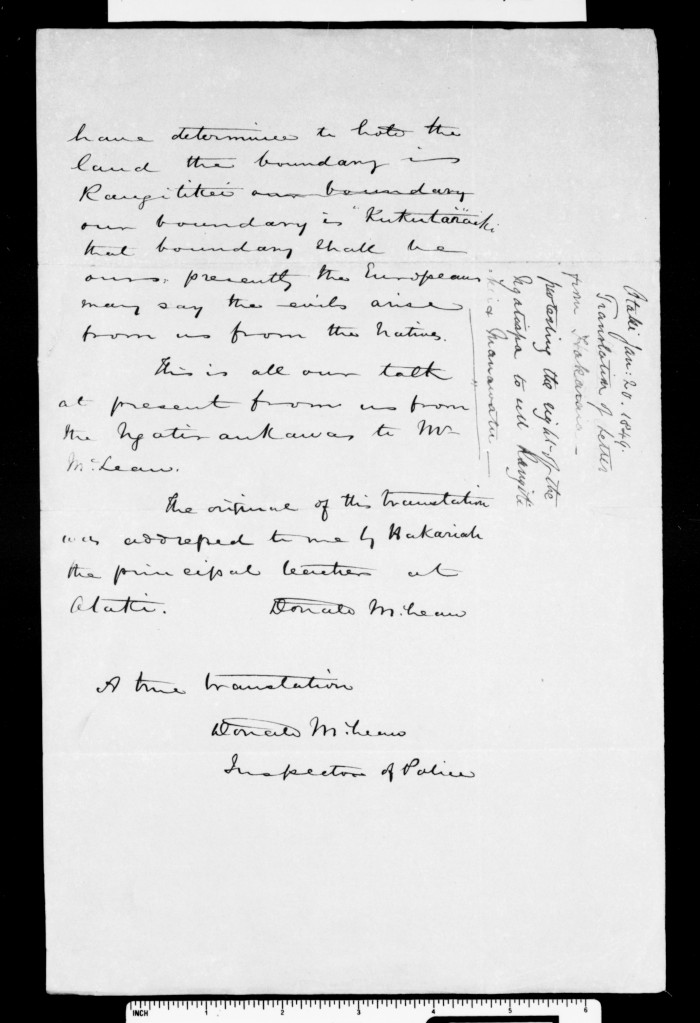 have determined to hold the
land the boundary is
Rangitikei our boundary
our boundary is "Kukutaraaki"
that boundary shall be
ours. presently the Europeans
may say the evils arise
from us from the Natives.
This is all our talk
at present from us from
the Ngatiraukawas to Mr
McLean.
The original of this translation
was addressed to me by Hakariah
the principal teacher at
Otaki. Donald McLean
A true translation
Donald McLean
Inspector of Police
Otaki Jan: 20. 1849.
Translation of letter
from
protesting the right of the
Ngatiapa to sell Rangiti
Manawatu —
INCH 1 2 3 4 5 6